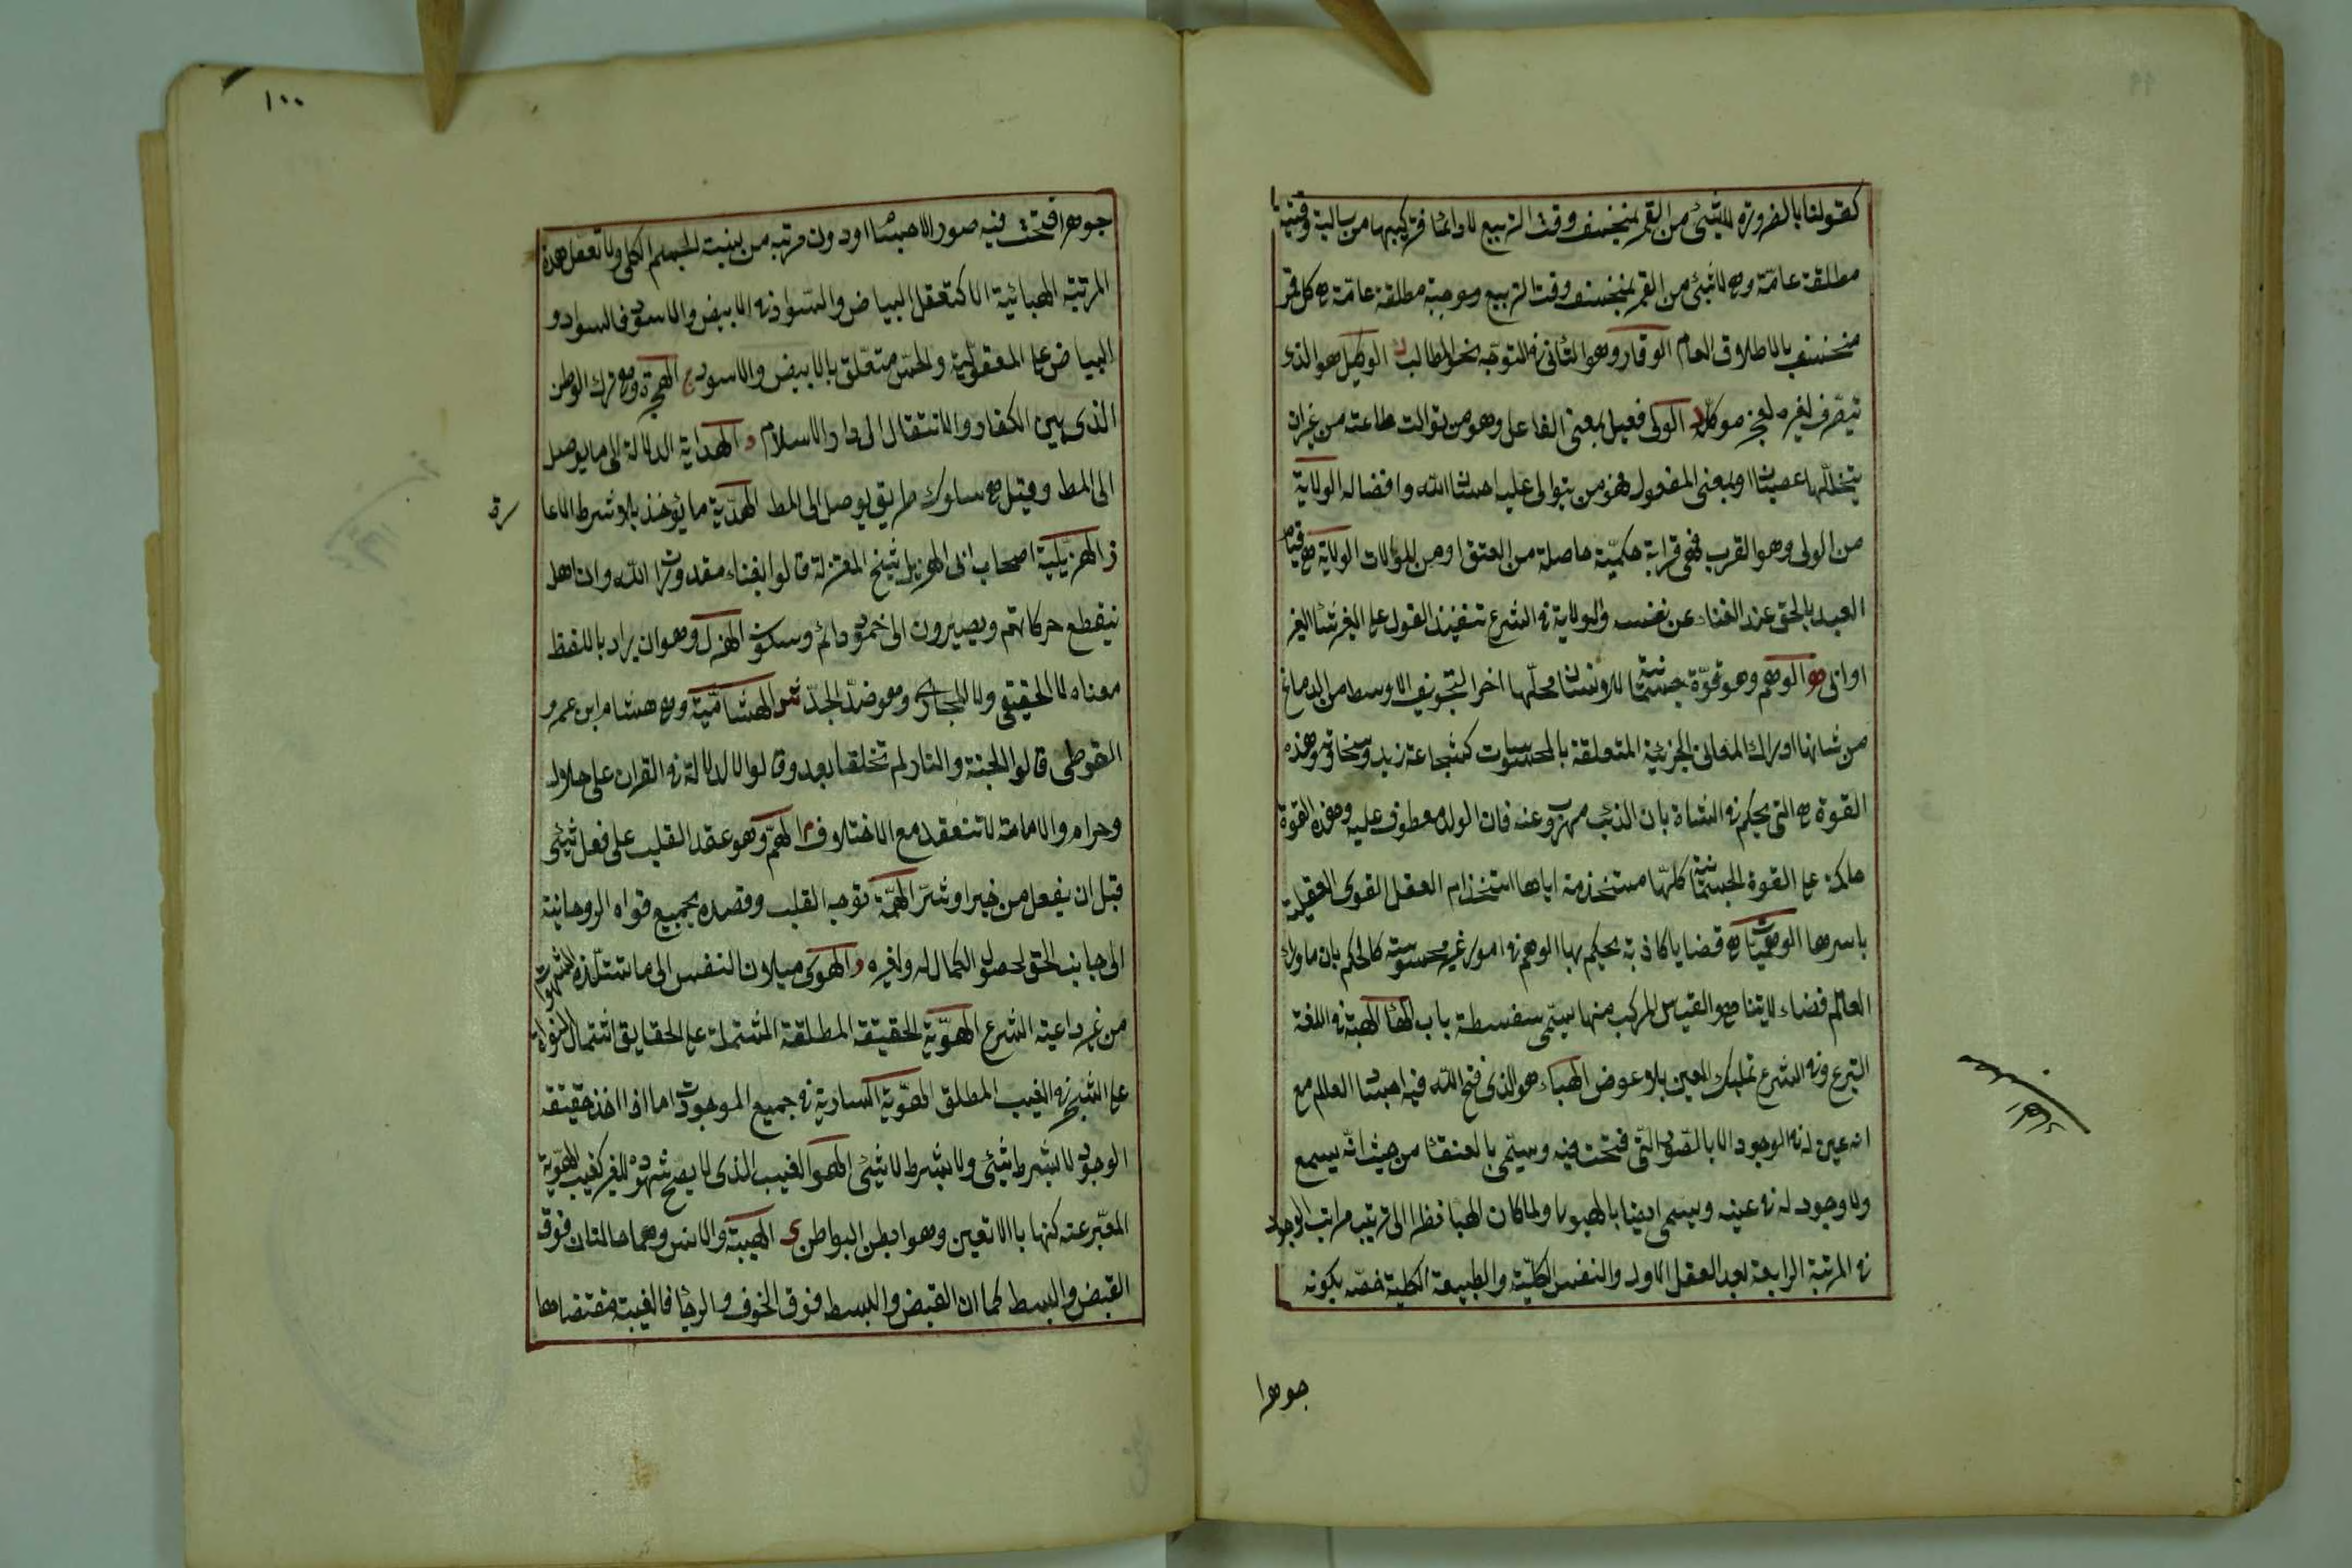 كقولنا بالضرورة لا شيئ من القمر بمنخسف وقت التربيع لا دائما فتركيبها من سالبة وقتية
مطلقة عامّة وهي لا شيئ من القمر بمنخسف وقت التربيع وموجبة مطلقة عامّة هي كل قمر
منخسف بالاطلاق العام الوقار وهو التأني في التوجّه نحو المطالب ك الوكيل هو الذى
يتصرف لغيره لعجز موكّله ل الولى فعيل بمعنى الفاعل وهو من توالت طاعته من غير ان
يتخللها عصيان او بمعنى المفعول فهو من يتوالى عليه احسان الله وافضاله الولاية
من الولى وهو القرب فهى قرابة حكميّة حاصلة من العتق او من الموالات الولاية هي قيام
العبد بالحق عند الفناء عن نفسه والولاية في الشرع تنفيذ القول على الغير شاء الغير
او ابى هو الوهم وهو قوّة جسمانية للانسان محلّها اخر التجويف الاوسط من الدماغ
من شانها ادراك المعانى الجزئية المتعلقة بالمحسوسات كشجاعة زيد وسخاوته وهذه
القوة هي التى يحكم في الشاة بان الذئب مهروب عنه فان الولد معطوف عليه وهذه القوة
حاكمة على القوة الجسمانية كلّها مستخدمة اياها استخدام العقل القوى العقيلة
باسرها الوهميات هي قضايا كاذبة يحكم بها الوهم في امور غير محسوسة كالحكم بان ماوراء
العالم فضاء لا يتناهى والقياس المركب منها يسمّى سفسطة باب الهاء الهبة في اللغة
التبرع وفى الشرع تمليك العين بلا عوض الهباء هو الذى فتح الله فيه اجساد العالم مع
انه عين له في الوجود الا بالصّور التّى فتحت فيه ويسمّى بالعنقاء من حيث انّه يسمع
ولا وجود له في عينه ويسمى ايضا بالهيولى ولما كان الهبا نظرا الى ترتيب مراتب الوجود
في المرتبة الرابعة بعد العقل الاول والنفس الكليّة والطبيعة الكلية خصّه بكونه
جوهرا
١٠٠
جوهرا فتحت فيه صور الاجساد اودون مرتبه من بينيت الجسم الكلى ولا تعقل هذه
المرتبة الهبائية الا كتعقل البياض والسّواد في الابيض والاسود فالسواد و
البياض على المعقوليّة والحسّ متعلّق بالابيض والاسود ج الهجرة وهي ترك الوطن
الذى بين الكفار والانتقال الى دار الاسلام د الهداية الدلالة الى ما يوصل
الى المط وقيل هي سلوك طريق يوصل الى المط الهديّة ما يؤخذ بلا شرط الاعا
ز الهزيليّة اصحاب ابى الهزيل شيخ المعتزلة قالوا بفناء مقدورات الله وان اهل
ينقطع حركاتهم ويصيرون الى خمود دائم وسكون الهزل وهو ان يراد باللفظ
معناه لا الحقيقى ولا المجازى وهو ضدّ الجدّ ش الهشاميّة وهي هشام ابن عمرو
القوطى قالوا الجنة والنار لم تخلقا بعد وقالوا لا دلالة في القران على حلال
وحرام والامامة لا تنعقد مع الاختلاف م الهمّ وهو عقد القلب على فعل شيئى
قبل ان يفعل من خير او شرّ الهمّة توجه القلب وقصده بجميع قواه الروحانية
الى جانب الحق لحصول الكمال له ولغيره و الهوى ميلان النفس الى ما تستلذه الشهوات
من غير داعية الشرع الهويّة الحقيقة المطلقة المشتملة على الحقايق اشتمال النواة
على الشجر في الغيب المطلق الهويّة السارية في جميع الموجودات اما اذا اخذ حقيقة
الوجود لا بشرط شيئى ولا بشرط لا شيئى الهو الغيب الذى لا يصح شهوده للغير كغيب الهويّة
المعبّر عنه كنها باللاتعين وهو ابطن البواطن ى الهيبة والانس وهما حالتان فوق
القبض والبسط كما ان القبض والبسط فوق الخوف والرجاء فالهيبة مقتضاها